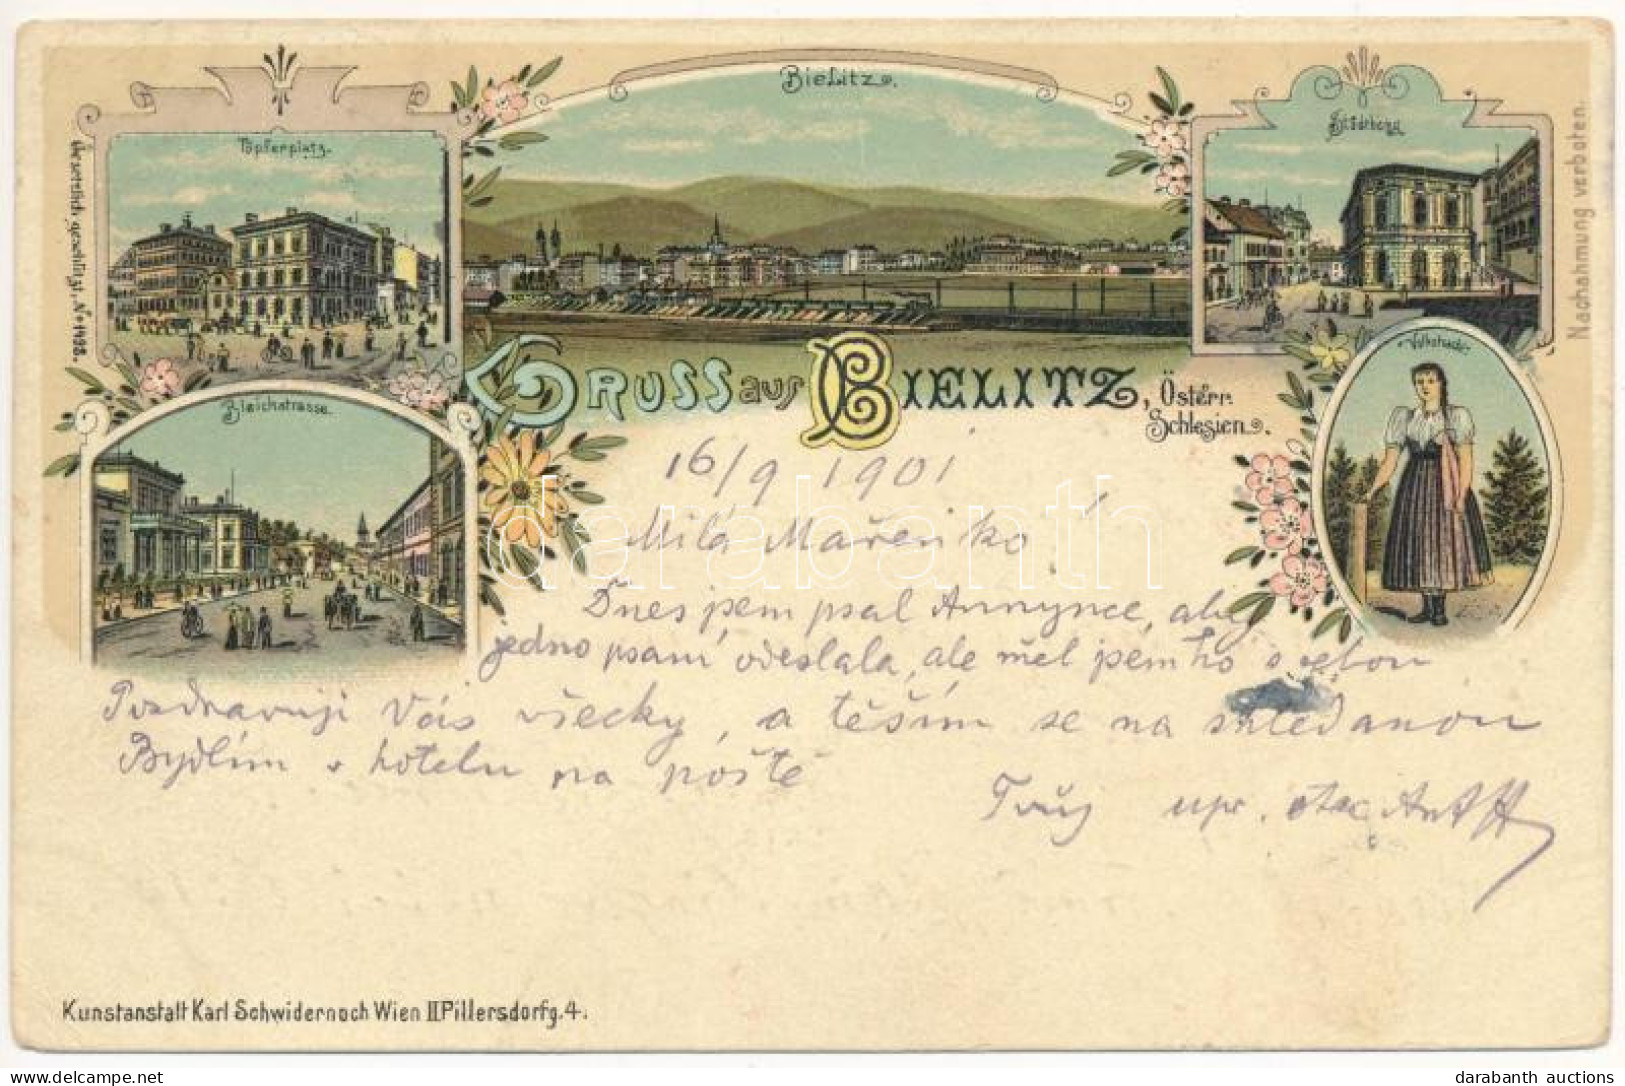 Bielitz.
Töpferplatz.
Stadtberg
Gesetzlich geschützt, No 1498.
Nachahmung verboten.
Bleichstrasse.
Volkstracht
GRUSS aus BIELITZ, Österr.
Schlesien.
16/9 1901
Milá Mařenko!
Dnes jsem psal Annynce, aby
jedno psaní odeslala, ale měl jsem ho s sebou
Pozdravuji Vás všecky, a těším se na shledanou
Bydlím v hotelu na poště
Tvůj upr. otec
Kunstanstalt Karl Schwidernoch Wien II Pillersdorfg. 4.
darabanth
darabanth auctions